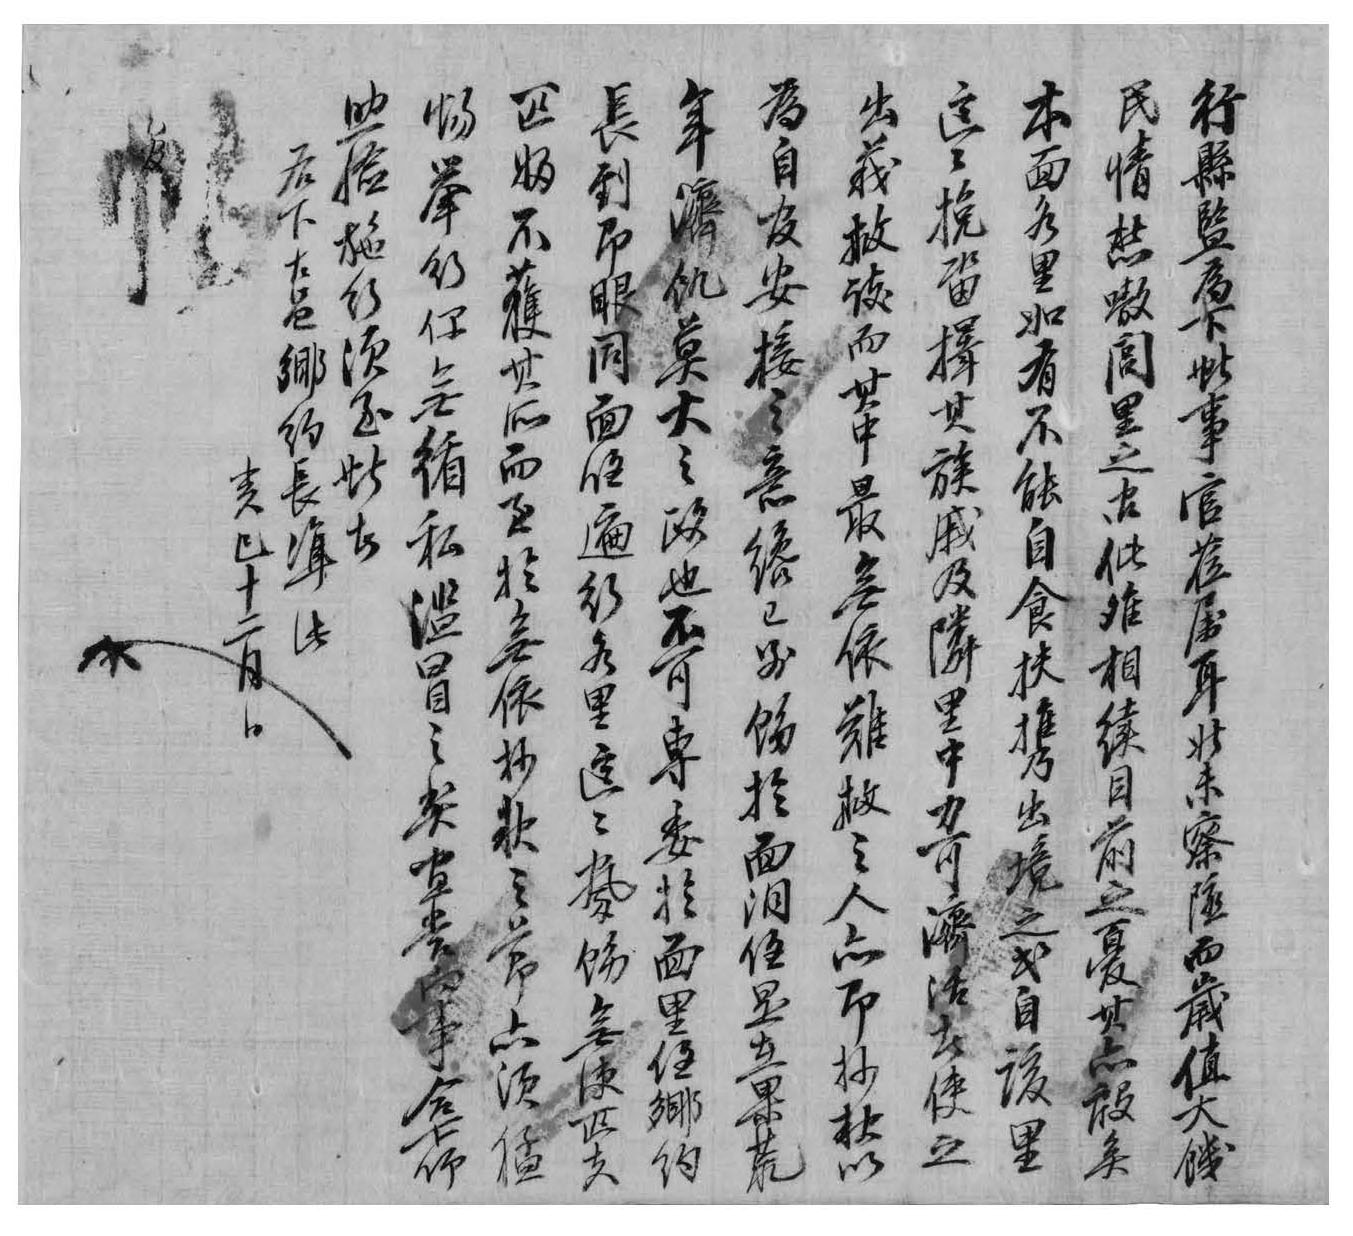 行縣監爲下帖事官莅屬耳此未察隱而歲値大饑
民情愁嗷閭里之內似難相續目前之憂其亦殷矣
本面各里如有不能自食扶携出境之民自該里
這這挽留擇其族戚及隣里中力可濟活者使之
出義救濟而其中最無依難救之人亦卽抄報以
爲自官安接之意纔已另飭於面洞任是在果荒
年濟飢莫大之政也不可專委於面里任鄕約
長到卽眼同面任遍行各里這這勢飭無使匹夫
匹婦不獲其所而至於無依抄報之節亦須猛
惕擧行俾無循私濫冒之弊宜當向事合下仰
照驗施行須至帖者
右下 古邑鄕約長準此
癸巳十二月 日
帖